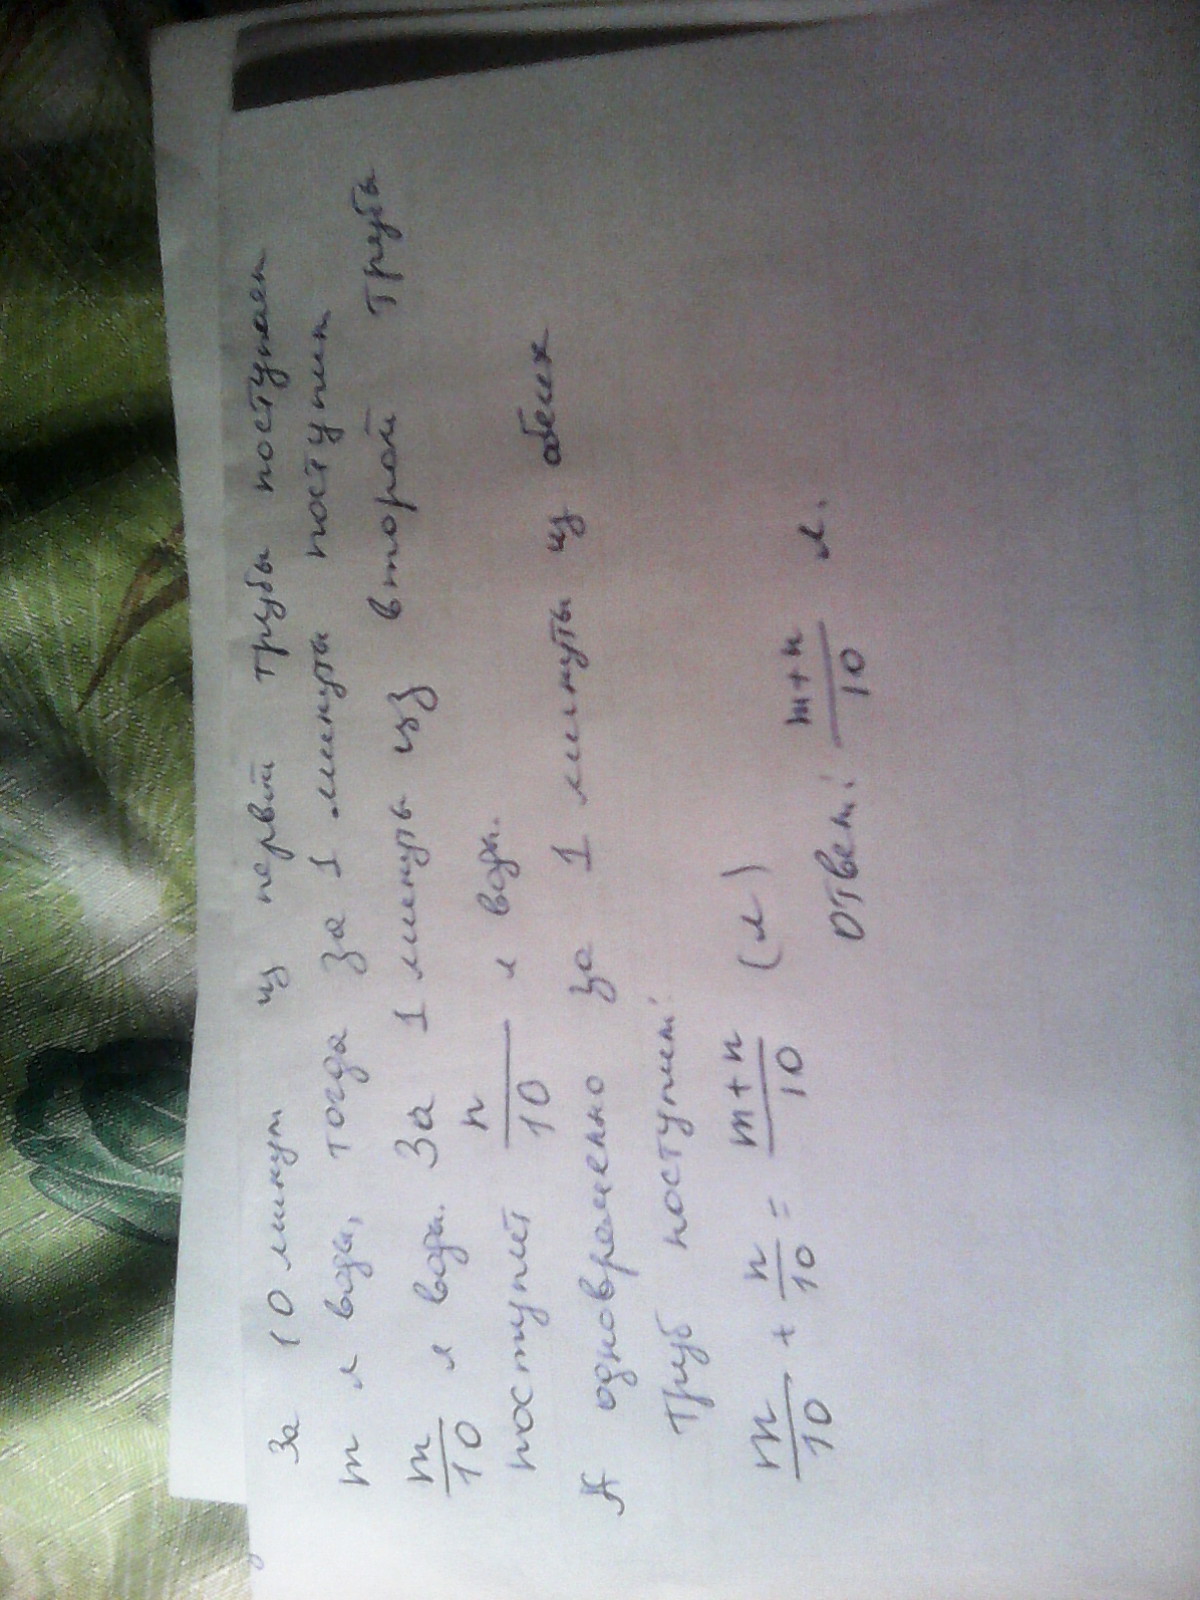 За 10 минут из первой трубы поступает
m л воды, тогда за 1 минуты поступит
m/10 л воды. За 1 минуты из второй трубы
поступит n/10 л воды.
А одновременно за 1 минуты из обеих
труб поступит:
m/10 + n/10 = m+n/10 (л)
Ответ: m+n/10 л.